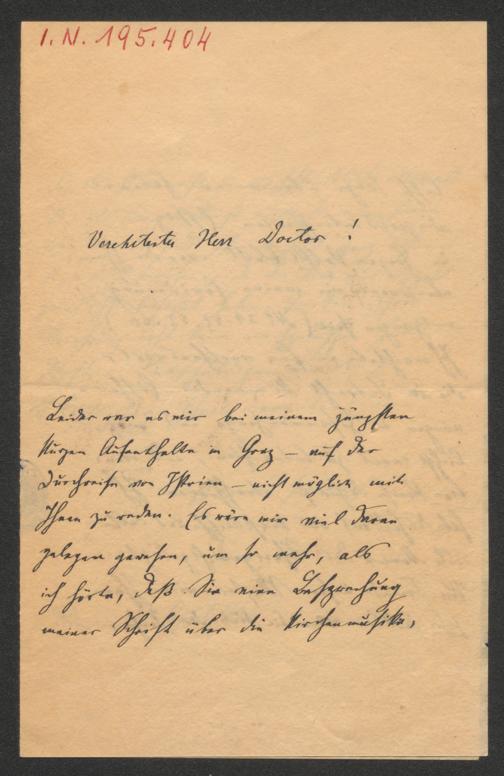 I.N. 195.404
Verehrtester Herr Doctor!
Leider war es mir bei meinem jüngsten
kurzen Aufenthalte in Graz – auf der
Durchreise von Istrien – nicht möglich mit
Ihnen zu reden. Es wäre mir viel daran
gelegen gewesen, um so mehr, als
ich hörte, daß Sie eine Besprechung
meiner Schrift über die Kirchenmusik,